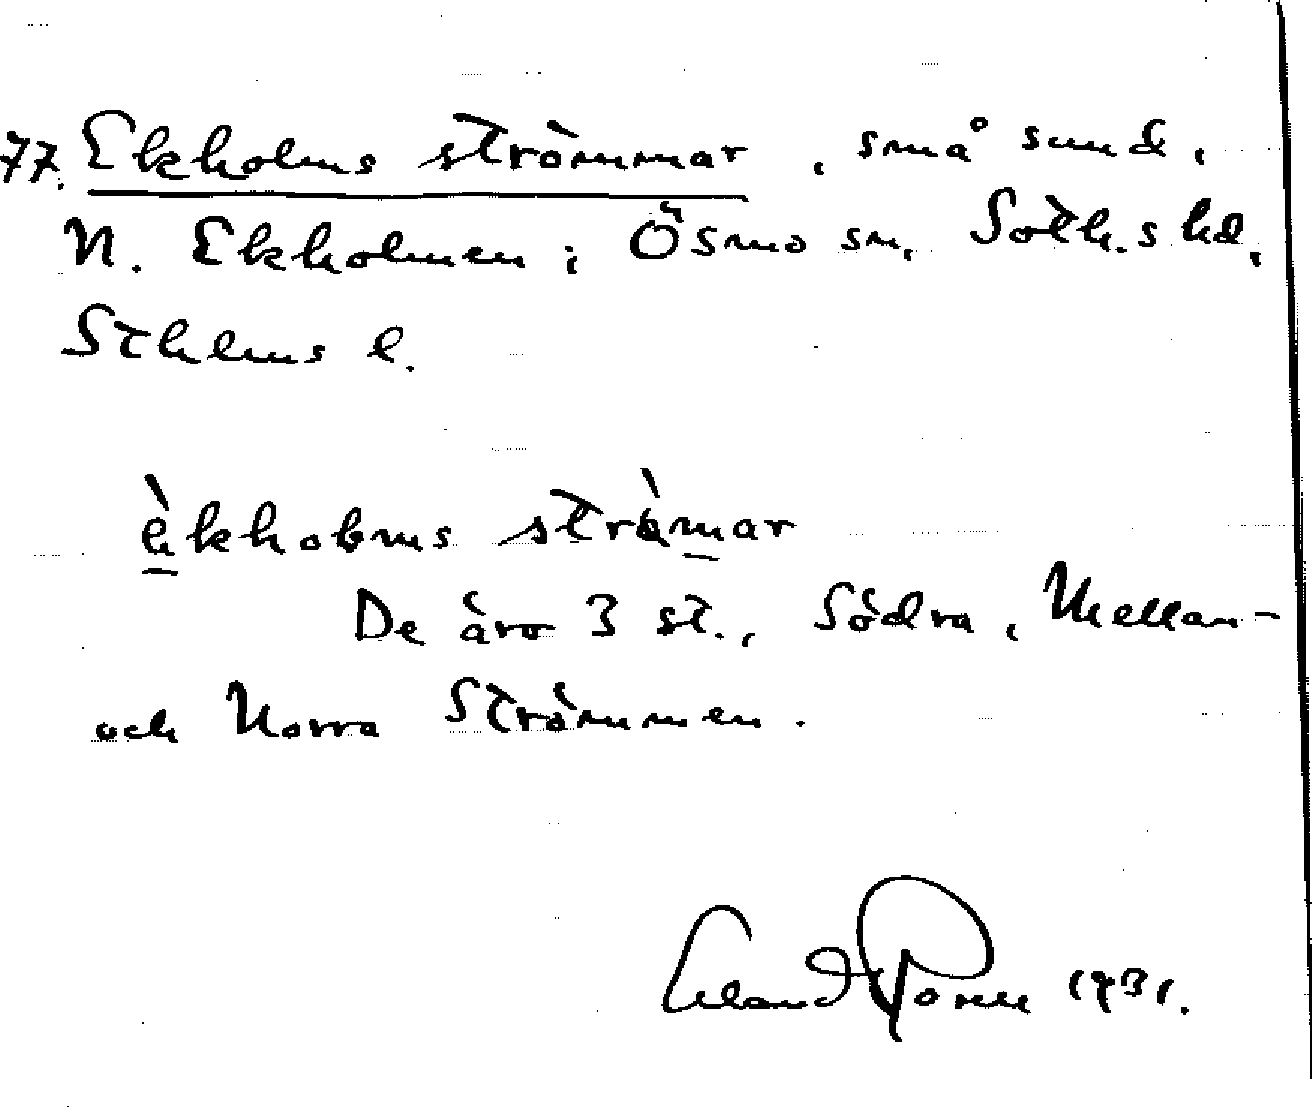 77. Ekholms strömmar, små sund,
N. Ekholmen i Ösmo sn, Soth.s hd,
Sthlms l.
èkhολms stròmar
De äro 3 st., Södra, Mellan-
och Norra Strömmen.
1931.